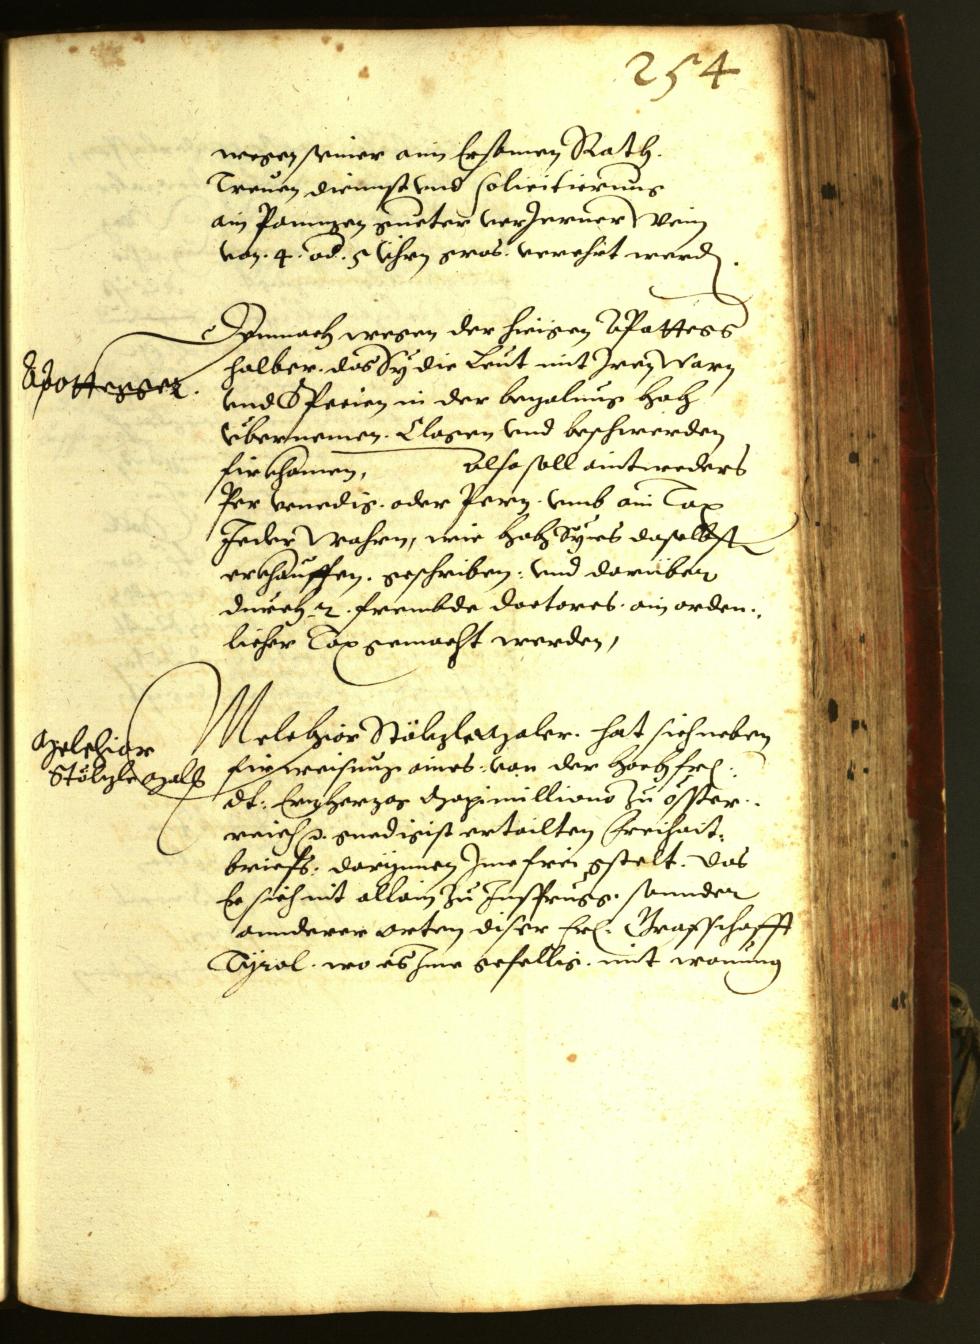 254
wegen seiner aim Ersamen Rath.
Treuen diennst und solicitierung
ain Pannzen gueter verJerner Wein
von .4. od. 5 Uhrn gros. verehrt werdn.
Demnach wegen der hieigen Apottegg
Apottegger.
halber. das Sy die Leut mit Jren Warn
und Specien in der bezalung hoch
übernemen. Clagen und beschwerden
firkhomen, Also soll aintweders
Per Venedig. oder Pern. umb ain Tax
Jeder Wahrn, wie hoch Sy es daselbst
erkhauffen. geschriben. und darüber
durch 2. frembde doctores. ain orden:
licher Tax gemacht werden,
Melchior
Stölzle Maler
Melchior Stölzle Maler. hat sich neben
fürweisung aines. von der hochfrl:
dt: Erzherzog Maximilliano zu Osster:
reich p. gnedigist ertailten Freihait:
briefs. darynnen Jme frei gstelt. das
Er sich nit allain zu Jnsprugg. sonnder
annderer orten diser frl. Grafschafft
Tyrol. wo es Jme gefellig. mit wonung